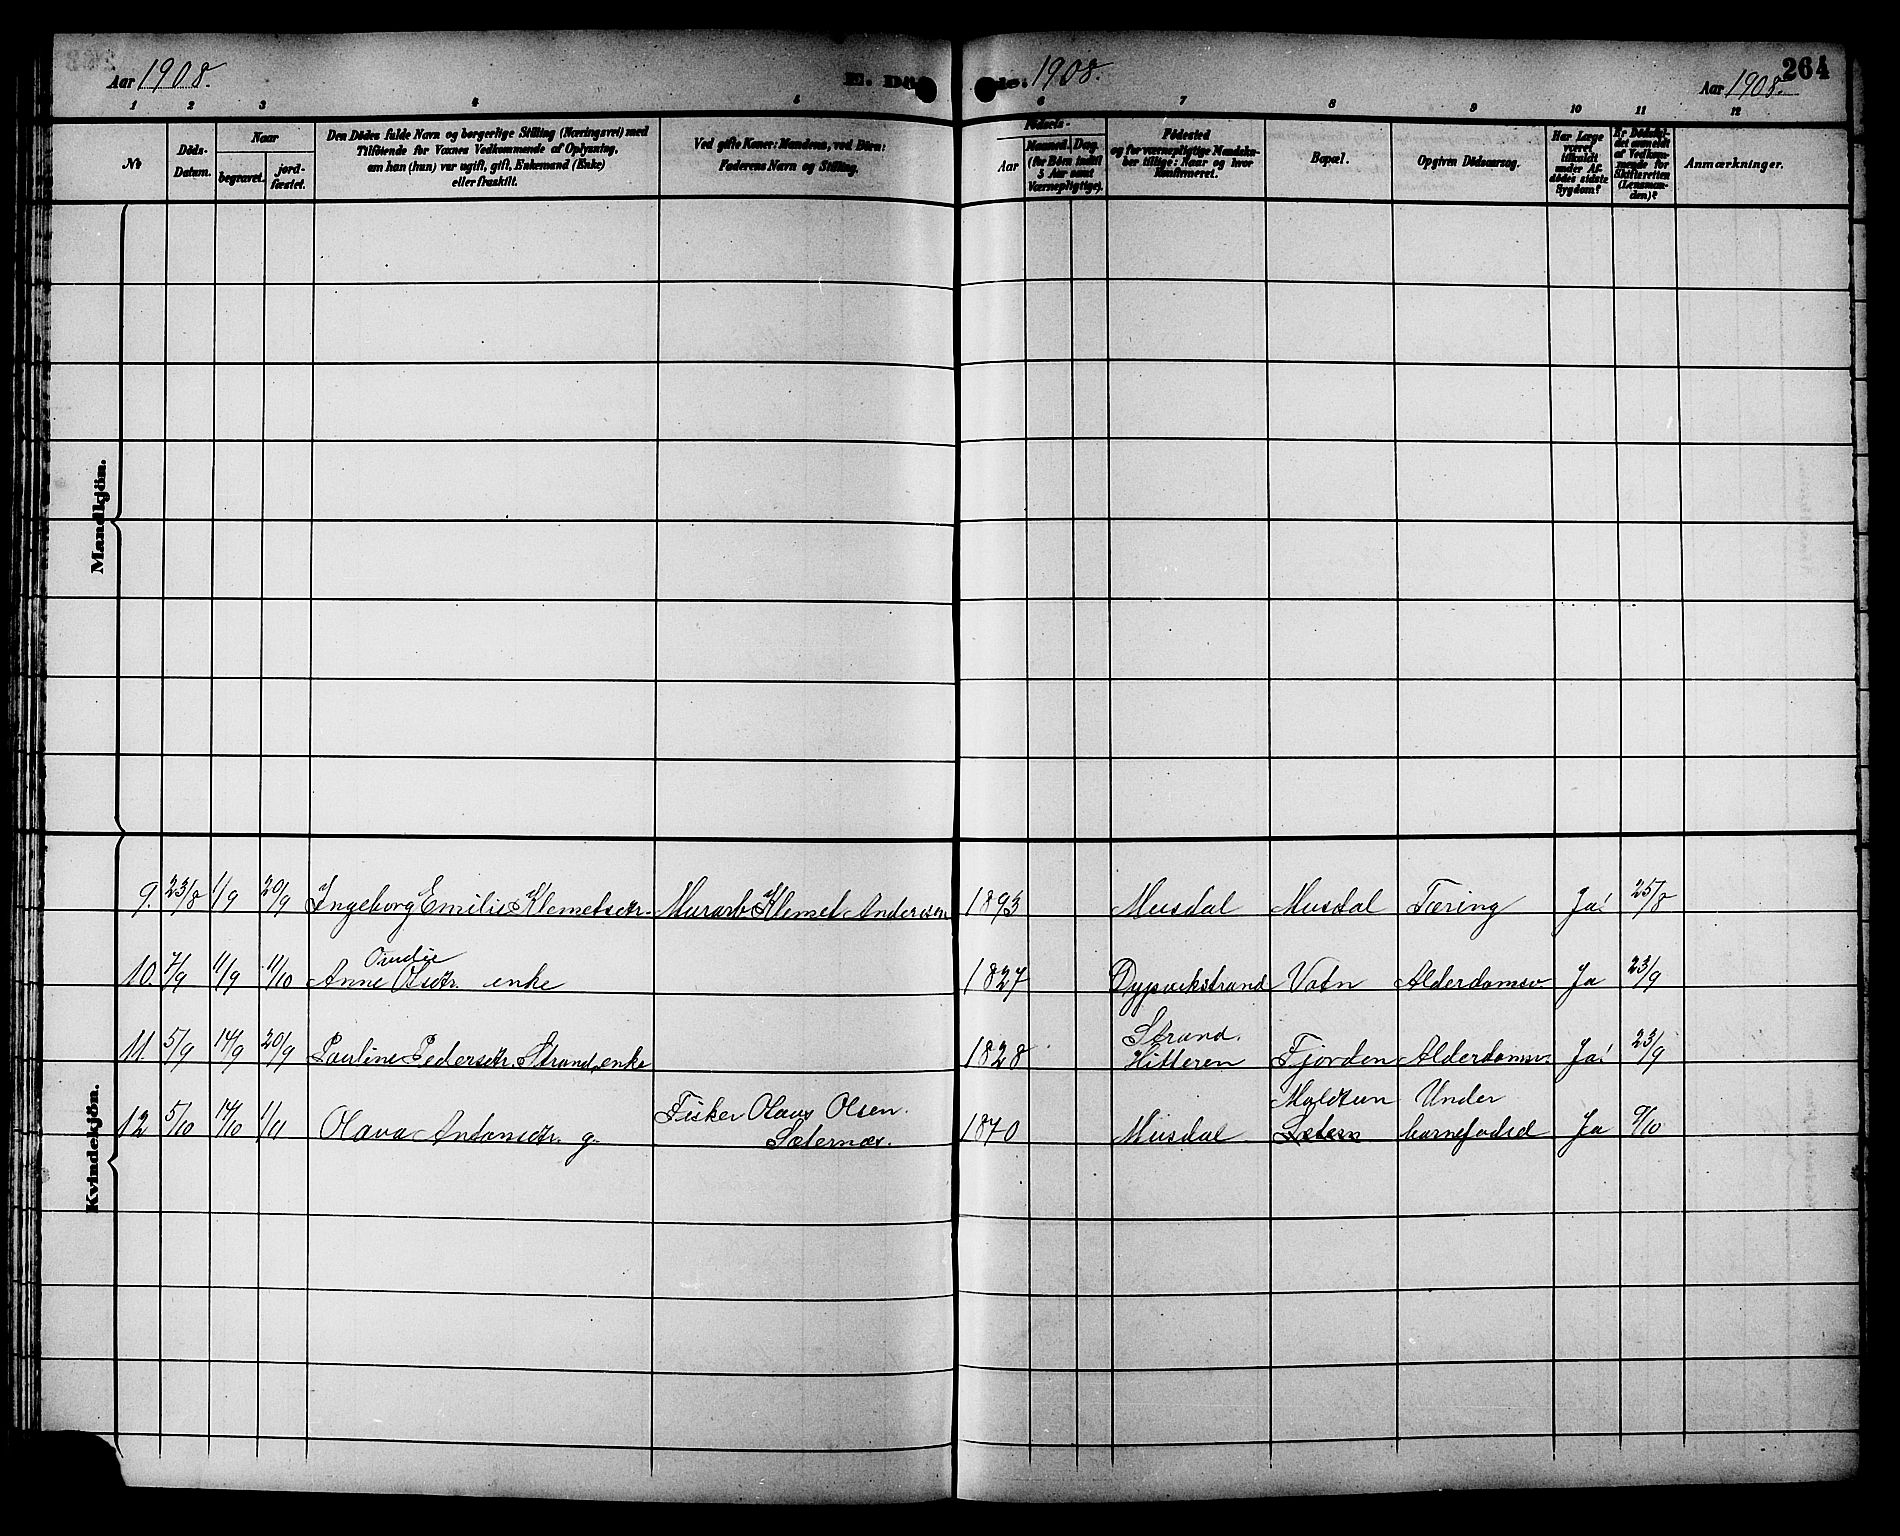 Aar 1908. E. Dö de. 1908. Aar 1908. 264
1 2 3 4 5 6 7 8 9 10 11 12
No
Döds-Datum.
Naar
begravet. jord-fæstet.
Den Dödes fulde Navn og borgerlige Stilling (Næringsvei) med
Tilföiende for Voxnes Vedkommende af Oplysning,
om han (hun) var ugift, gift, Enkemand (Enke)
eller fraskilt.
Ved gifte Koner: Mandens, ved Börn:
Faderens Navn og Stilling.
Födsels-
Aar
Maaned. Dag.
(for Börn indtil
5 Aar samt
Værnepligtige).
Födested
og for værnepligtige Mandskaber tillige: Naar og hvor
Konfirmeret.
Bopæl.
Opgiven Dödsaarsag.
Har Læge
været
tilkaldt
under Afdödes sidste
Sygdom?
Er Dödsfaldet anmeldt
af Vedkommende for
Skifteretten
(Lensmanden)?
Anmærkninger.
Mandkjön.
Kvindekjön.
9. 23/8 1/9 20/9 Ingeborg Emilie Klemetsdtr. Murarb Klemet Andersen 1893 Musdal Musdal Tæring Ja! 25/8
10. 7/9 11/9 11/10 Anne Olsdtr. enke 1827 Dypvikstrand Vatn Alderdomsv Ja 23/9
11. 5/9 14/9 20/9 Pauline Pedersdtr. Strand, enke 1828 Strand. Hitteren Fjorden Alderdomsv. Ja! 23/9
12 5/10 14/10 1/11 Olava Antonsdtr. g. Fisker Olaus Olsen. Sæternæs. 1870 Musdal Moldtun Under barnefødsel Ja 9/10